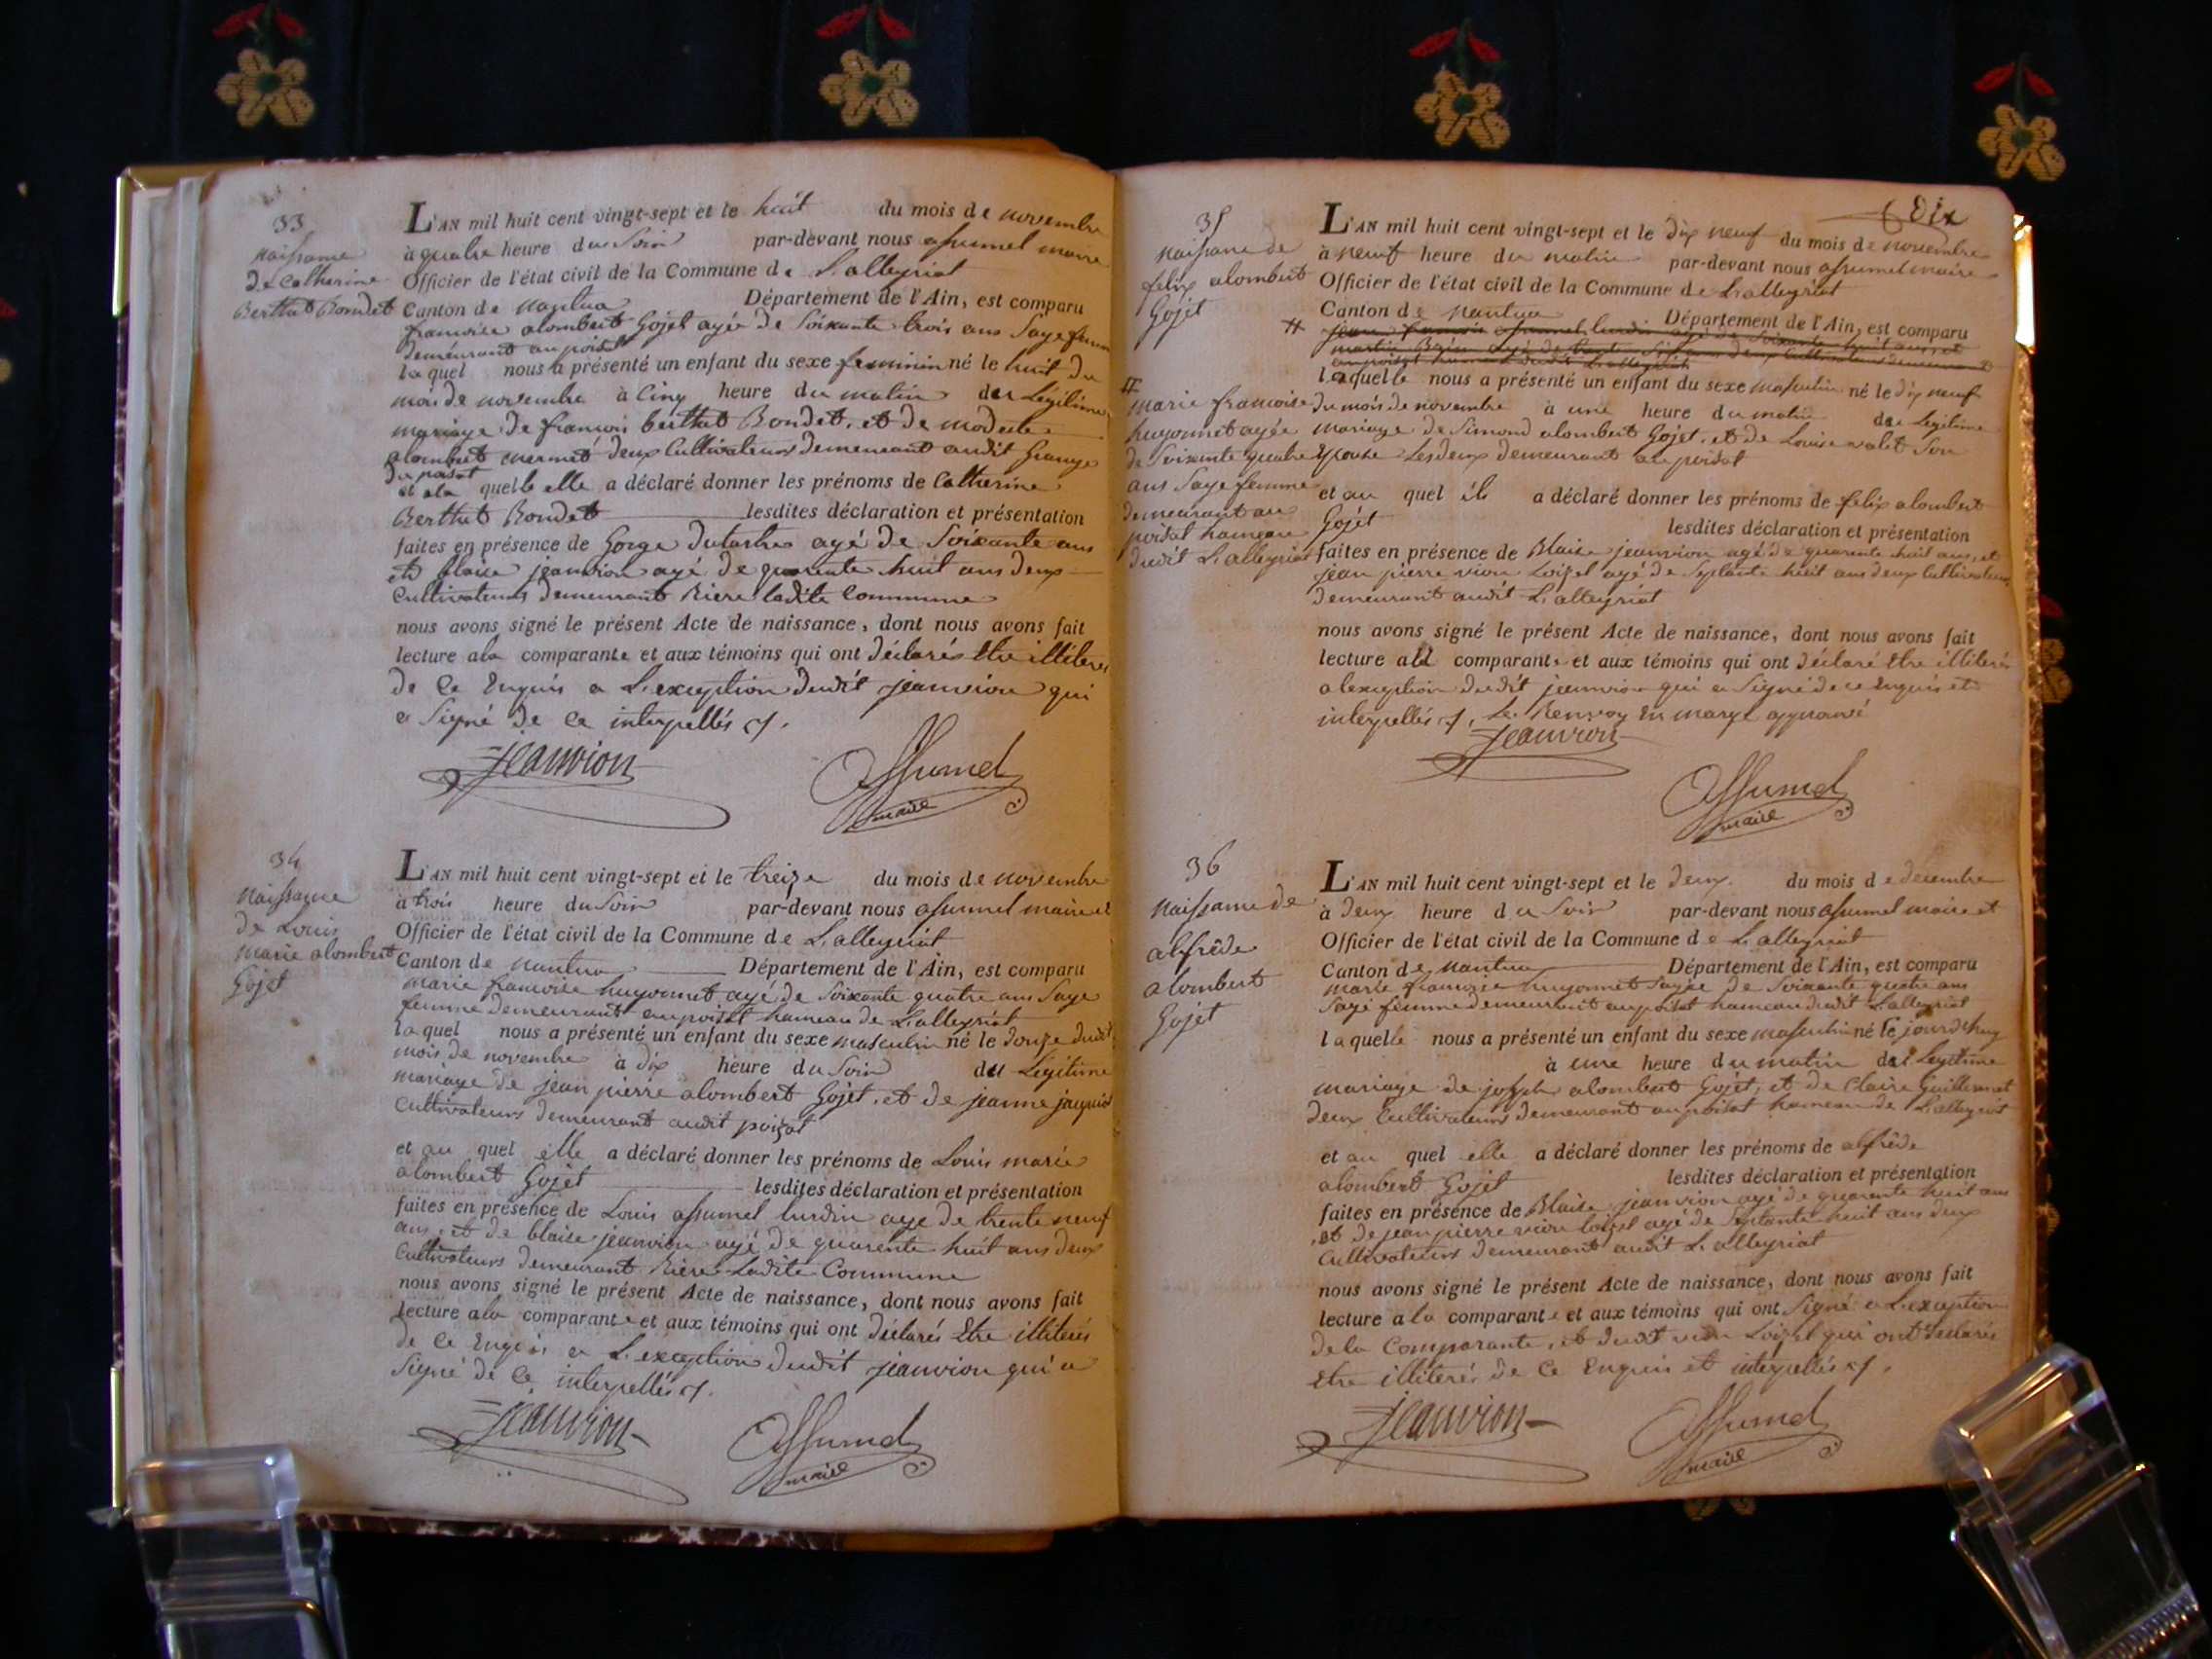 33
naissance
de Catherine
Berthet Bondet
L'AN mil huit cent vingt-sept et le huit du mois de novembre
à quatre heure du Soir par-devant nous assumel maire
Officier de l'état civil de la Commune de L'alleyriat
Canton de nantua Département de l'Ain, est comparu
francoise alombert Gojet agée de Soixante trois ans Sage femme
demeurant au poisat
laquel nous a présenté un enfant du sexe feminin né le huit du
mois de novembre à Cinq heure du matin du Légitime
mariage de francois berthet Bondet, et de modeste
alombert mermet deux Cultivateurs demeurant audit Grange
du poisat
et a la quelle elle a déclaré donner les prénoms de Catherine
Berthet Bondet lesdites déclaration et présentation
faites en présence de Gorge Dutartre agé de Soixante ans
et blaise jeanvion agé de quarente huit ans deux
Cultivateurs demeurant Riere ladite Commune
nous avons signé le présent Acte de naissance, dont nous avons fait
lecture a la comparante et aux témoins qui ont déclarés Etre illiteres
de Ce Enquis a L'exception dudit jeanvion qui
a Signé de Ce interpellés
Jeanvion Assumel
maire
34
naissance
de Louis
marie alombert
Gojet
L'AN mil huit cent vingt-sept et le treize du mois de novembre
à trois heure du Soir par-devant nous assumel maire et
Officier de l'état civil de la Commune de L'alleyriat
Canton de nantua Département de l'Ain, est comparu
marie francoise huyonnet agé de Soixante quatre ans Sage
femme demeurant au poisat hameau de L'alleyriat
laquel nous a présenté un enfant du sexe masculin né le douze dudit
mois de novembre à dix heure du Soir du Légitime
mariage de jean pierre alombert Gojet, et de jeanne
Cultivateurs demeurant audit poizat
et au quel elle a déclaré donner les prénoms de Louis marie
alombert Gojet lesdites déclaration et présentation
faites en présence de Louis assumel lurdin age de trente neuf
ans, et de blaise jeanvion agé de quarente huit ans deux
Cultivateurs demeurant Riere Ladite Commune
nous avons signé le présent Acte de naissance, dont nous avons fait
lecture a la comparante et aux témoins qui ont déclarés Etre illiterés
de Ce Enquis a L'exception dudit jeanvion qui a
Signé de Ce interpellés
Jeanvion Assumel
maire
Dix
35
naissance de
felix alombert
Gojet
L'AN mil huit cent vingt-sept et le dix neuf du mois de novembre
à neuf heure du matin par-devant nous assumel maire
Officier de l'état civil de la Commune de L'alleyriat
Canton de nantua Département de l'Ain, est comparu
laquelle nous a présenté un enfant du sexe masculin né le dix neuf
du mois de novembre à une heure du matin du Légitime
mariage de Simond alombert Gojet, et de Louise valet Son
Epouse Les deux demeurant au poisat
et au quel ils a déclaré donner les prénoms de felix alombert
Gojet lesdites déclaration et présentation
faites en présence de Blaise jeanvion agé de quarente huit ans, et
jean pierre vion Loisel agé de Septante huit ans deux Cultivateurs
demeurant audit L'alleyriat
nous avons signé le présent Acte de naissance, dont nous avons fait
lecture a la comparante et aux témoins qui ont déclaré Etre illiterés
a lexception dudit jeanvion qui a Signé de ce Enquis et
interpellés, Le Renvoy En marge approuvé
Jeanvion
Assumel
maire
#
marie francoise
huyonnet agée
de Soixante quatre
ans Sage femme
demeurant au
poisat hameau
dudit L'alleyriat
36
naissance de
alfrède
alombert
Gojet
L'AN mil huit cent vingt-sept et le deux du mois de decembre
à deux heure du Soir par-devant nous assumel maire et
Officier de l'état civil de la Commune de L'alleyriat
Canton de nantua Département de l'Ain, est comparu
marie francoise huyonnet agée de Soixante quatre ans
Sage femme demeurant au poisat hameau dudit L'alleyriat
laquelle nous a présenté un enfant du sexe masculin né le jourdhuy
à une heure du matin du Legitime
mariage de joseph alombert Gojet, et de Claire Guillermet
deux Cultivateurs demeurant au poisat hameau de L'alleyriat
et au quel elle a déclaré donner les prénoms de alfrède
alombert Gojet lesdites déclaration et présentation
faites en présence de Blaise jeanvion agé de quarente huit ans
et de jean pierre vion loisel agé de Septante huit ans deux
Cultivateurs demeurant audit L'alleyriat
nous avons signé le présent Acte de naissance, dont nous avons fait
lecture a la comparante et aux témoins qui ont Signé a L'exception
de la Comparante, et dudit vion Loisel qui ont déclarés
Etre illiterés de Ce Enquis et interpellés
Jeanvion Assumel
maire